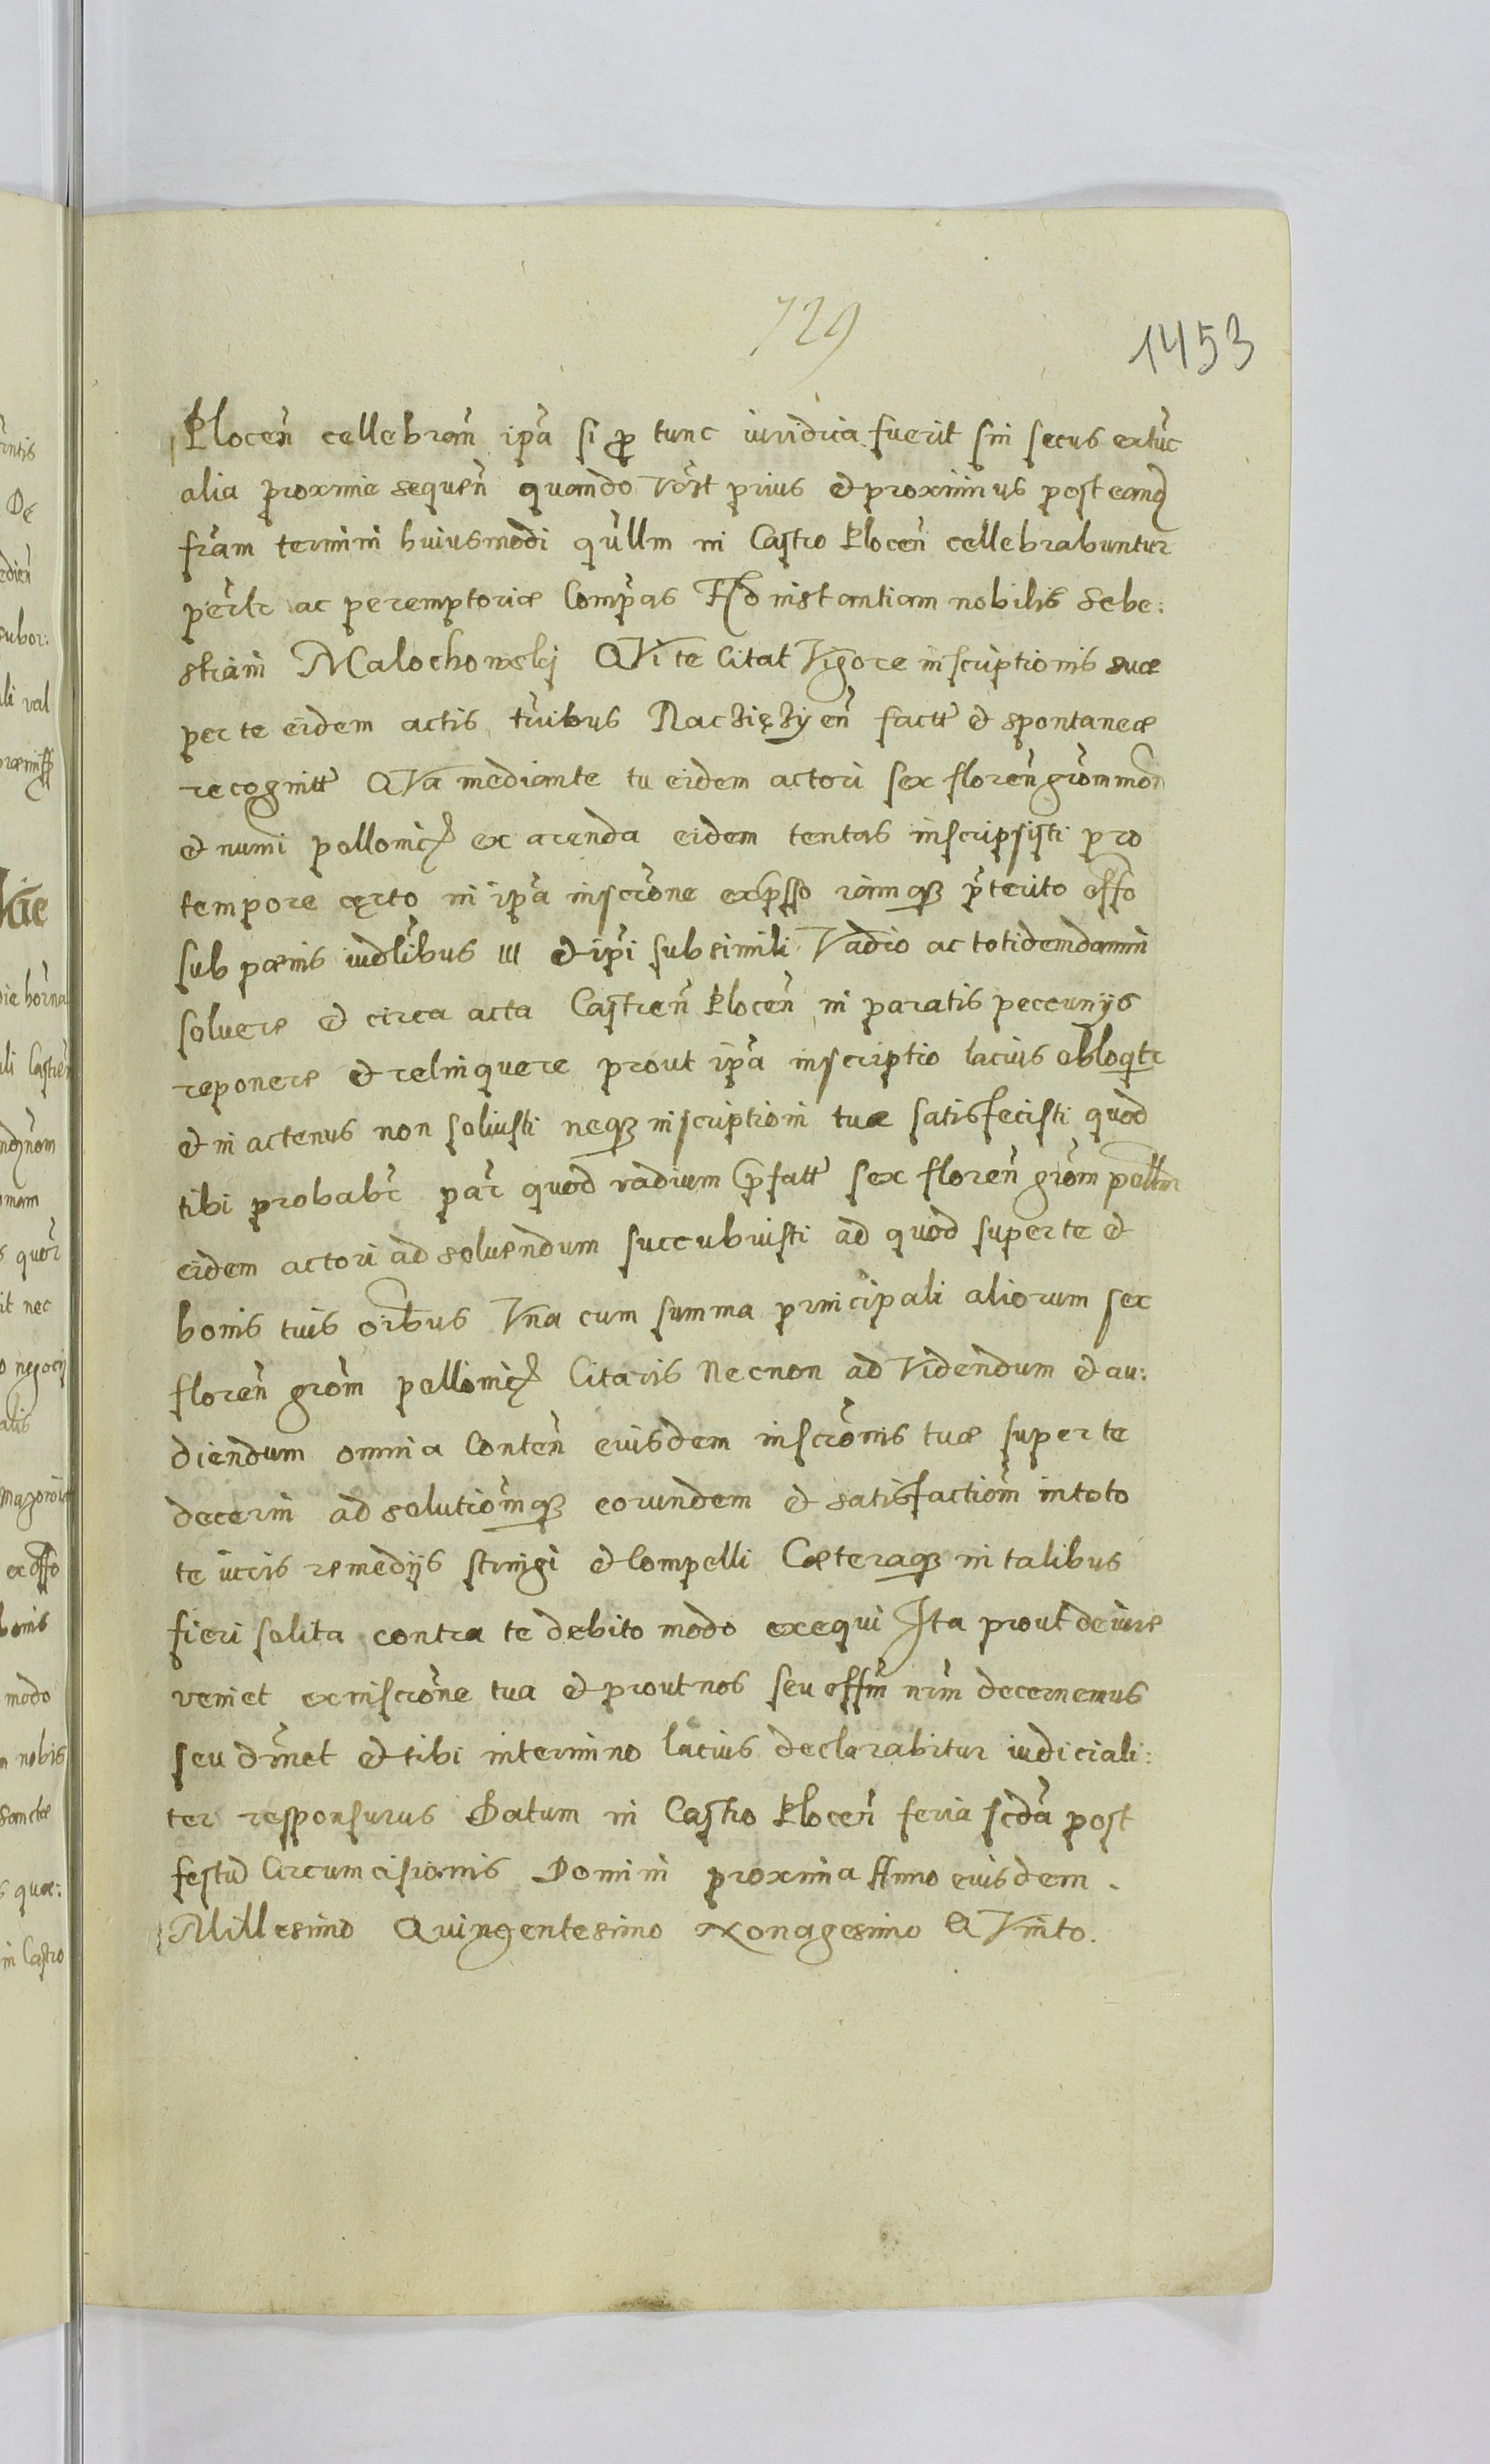 729
1453
Plocen̄ cellebran̄ ip̄a si pro tunc iuridica fuerit sin secus extūc
alia proxime sequen̄ quando vt̄ prius et proximius post eand
feriam termini huiusmodi qūllm in Castro Plocen̄ cellebrabuntur
perltr ac peremptoriæ Compas Ad instantiam nobilis Sebe:
stiani Malochowskj QVi te Citat Vigore inscriptionis suæ
per te eidem actis tr̄ibus Raczięzyen̄ factæ et spontaneæ
recognitæ QVa mediante tu eidem actori sex floren̄ grōm mon̄
et numi pollonic ex arenda eidem tentas inscripsisti pro
tempore certo in ip̄a inscrōne expsso iamq3 p̄terito offo
sub pœnis iudlibus III et ip̄i sub simili Vadio ac totidem damni
soluere et circa acta Castren̄ Plocen̄ in paratis peccunijs
reponere et relinquere prout ip̄a inscriptio lacius obloqtr
et in actenus non soluisti neq3 inscriptioni tuæ satisfecisti quod
tibi probabr̄ par̄ quod vadium p̄fatt sex floren̄ grōm pollon̄
eidem actori ad soluendum succubuisti ad quod super te et
bonis tuis oībus Vna cum summa principali aliorum sex
floren̄ grōm pollonic Citaris Necnon ad Videndum et au:
diendum omnia Conten̄ eiusdem inscrōnis tuæ super te
decerni ad solutiōmq3 eorundem et satisfactiōm in toto
te iuris remedijs stringi et Compelli Cæteraq3 in talibus
fieri solita contra te debito modo exequi Ita prout de iure
veniet ex inscrōne tua et prout nos seu offm nr̄m decernemus
seu dr̄net et tibi in termino lacius declarabitur iudiciali:
ter responsurus Datum in Castro Plocen̄ feria scdā post
festū Circumcisionis Domini proxima Anno eiusdem.
Millesimo Quingentesimo Nonagesimo QVinto.